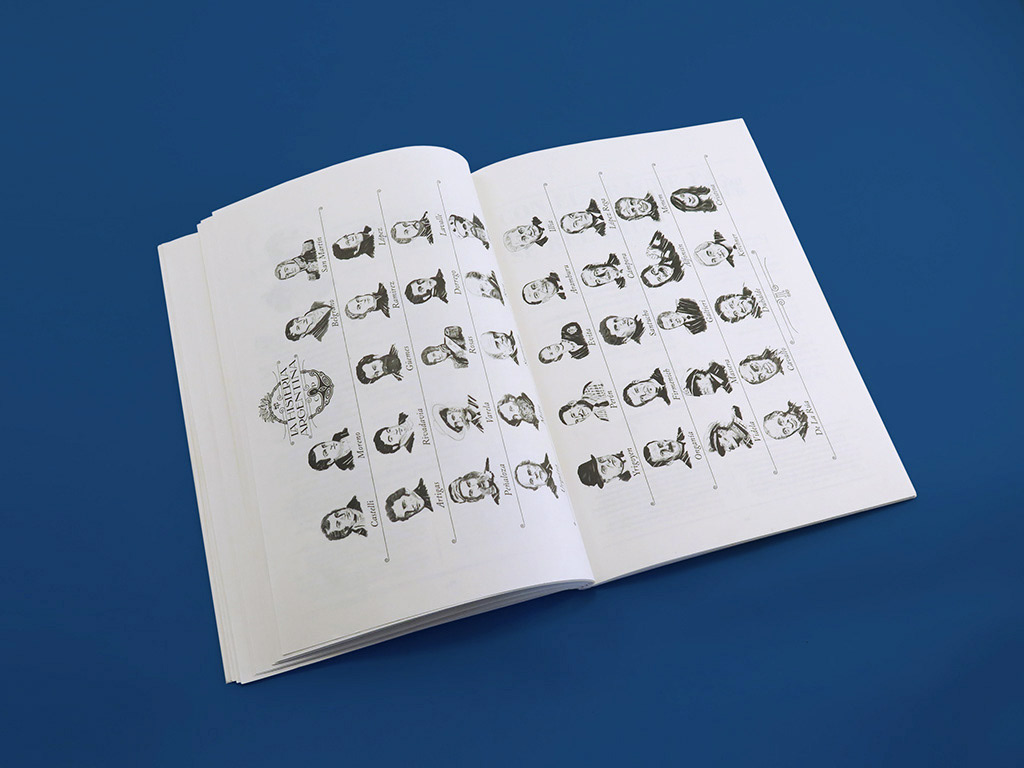 LA HISTERIA
ARGENTINA
Castelli
Moreno
Belgrano
San Martín
Artigas
Rivadavia
Güemes
Ramírez
López
Peñaloza
Varela
Rosas
Dorrego
Lavalle
Yrigoyen
Perón
Evita
Aramburu
Illia
Onganía
Firmenich
Santucho
Cámpora
López Rega
Videla
Massera
Galtieri
Alfonsín
Menem
De La Rúa
Cavallo
Duhalde
Kirchner
Cristina